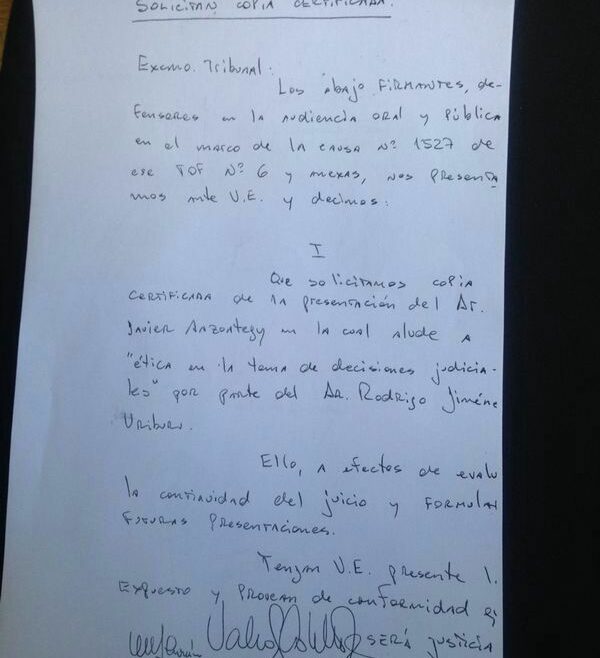 SOLICITAN COPIA CERTIFICADA.
Excmo. Tribunal:
Los abajo FIRMANTES, de-
fensores en la audiencia oral y pública
en el marco de la causa Nº 1527 de
ese TOF Nº 6 y anexas, nos presenta
mos ante V.E. y decimos:
I
Que solicitamos copia
certificada de la presentación del Dr.
Javier Anzoategy en la cual alude a
"ética en la toma de decisiones judicia-
les" por parte del Dr. Rodrigo Jiméne
Uriburu.
Ello, a efectos de evalu
la continuidad del juicio y FORMULAR
FUTURAS PRESENTACIONES.
Tengan V.E. presente l
Expuesto y provean de conformidad q
SERÁ JUSTICIA